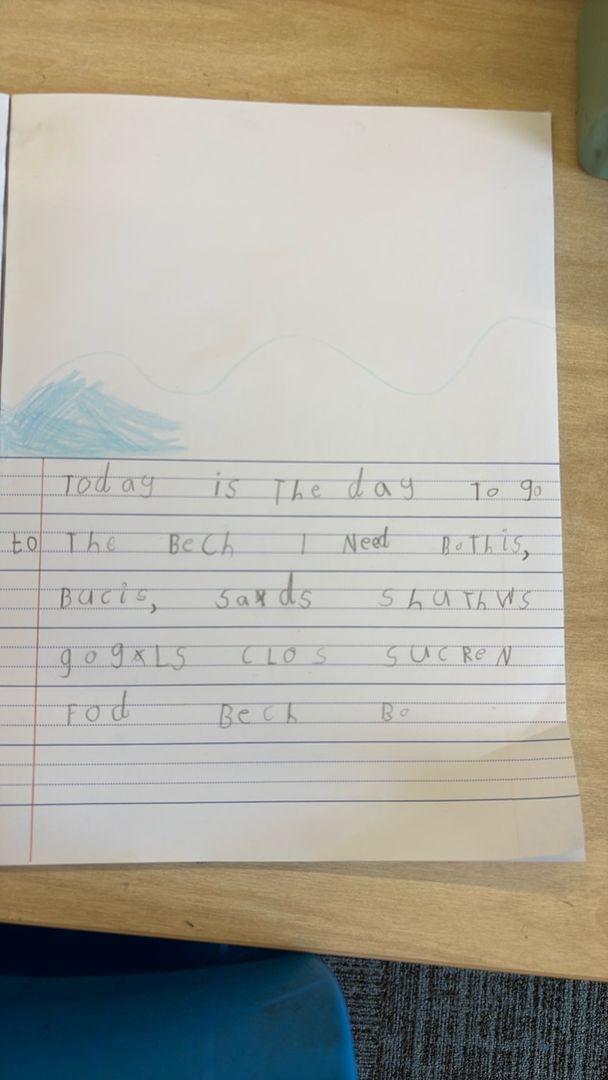 Today is The day To go
to The BeCh I Need BoThis,
Bucis, saxds shuThWs
gogxLS CLOS SUCReN
Fod Bech Bo